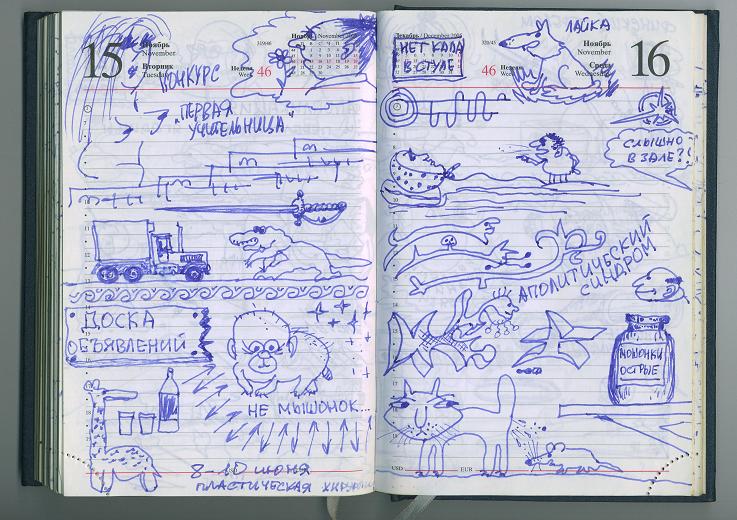 15
Ноябрь
November
Вторник
Tuesday
319/46
Неделя
Week
46
Ноябрь / November 2005
КОНКУРС
"ПЕРВАЯ
УЧИТЕЛЬНИЦА"
ДОСКА
ОБЪЯВЛЕНИЙ
НЕ МЫШОНОК...
8-10 ИЮНЯ
ПЛАСТИЧЕСКАЯ ХИРУРГИЯ
Декабрь / December 2005
НЕТ КАЛА
В СТУЛЕ!
320/45
46
Неделя
Week
ЛАЙКА
Ноябрь
November
Среда
Wednesday
16
СЛЫШНО
В ЗАЛЕ?!
АПОЛИТИЧЕСКИЙ
СИНДРОМ
МОШОНКИ
ОСТРЫЕ
USD
EUR